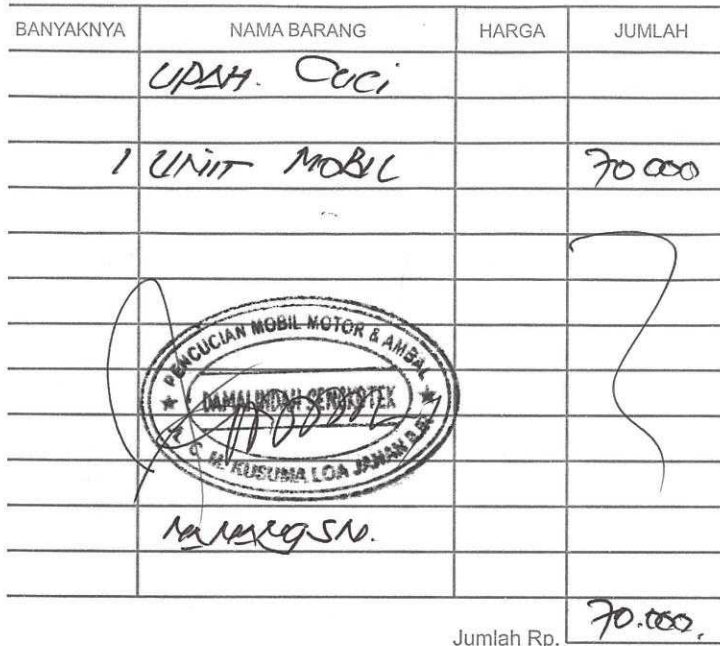 BANYAKNYA NAMA BARANG HARGA JUMLAH
UPAH. Cuci
1 UNIT MOBIL 70 000
PENCUCIAN MOBIL MOTOR & AMBAL
DAMAI INDAH SENGKOTEK
KUSUMA LOA JANAN
Jumlah Rp. 70.000,